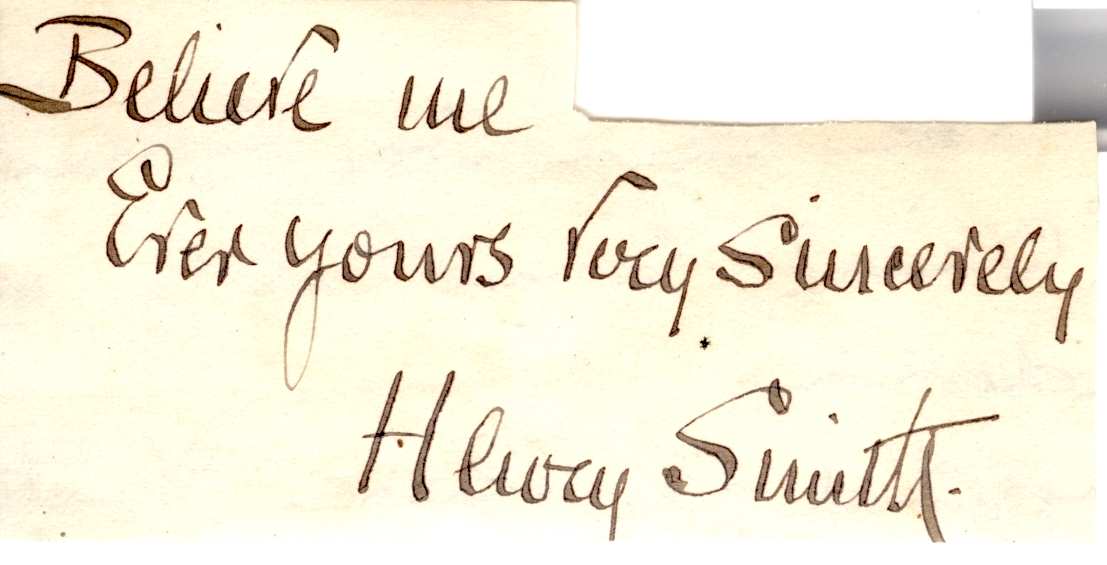 Believe me
Ever yours very Sincerely
Henry Smith.